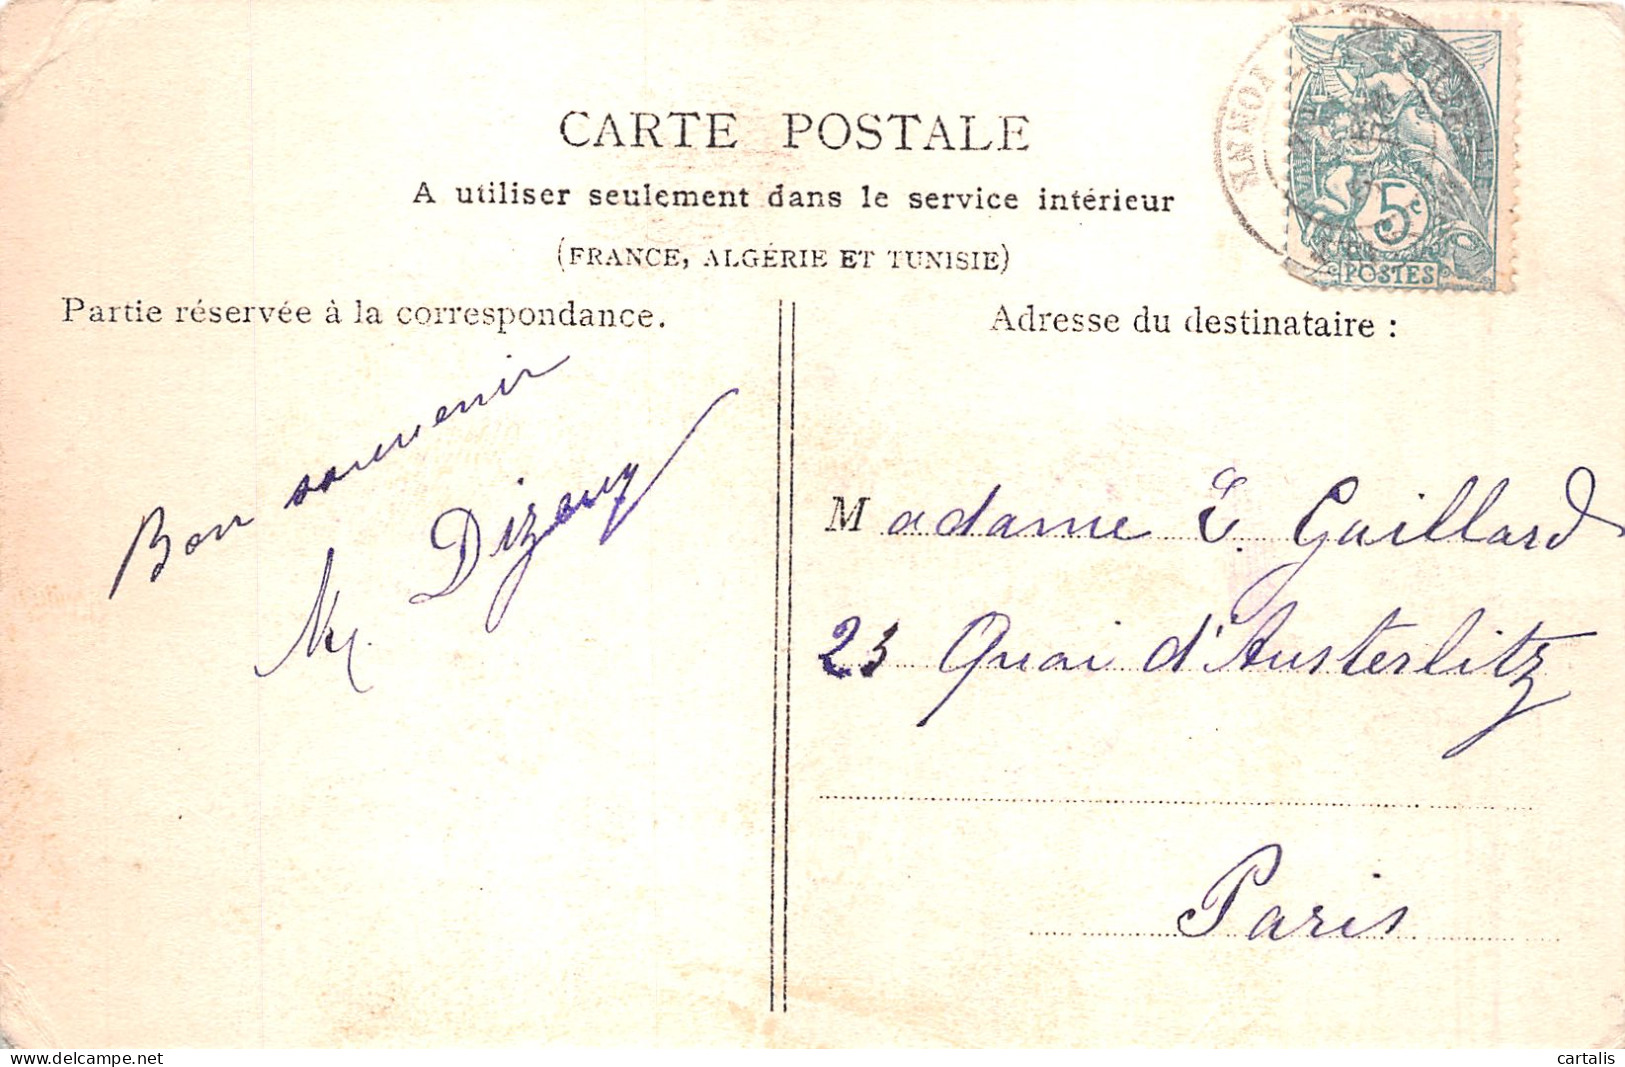 CARTE POSTALE
A utiliser seulement dans le service intérieur
(FRANCE, ALGÉRIE ET TUNISIE)
Partie réservée à la correspondance.
Bon souvenir
Dizeny
Adresse du destinataire :
Madame E. Gaillard
23 Quai d'Austerlitz
Paris
YONNE
5c
POSTES
cartalis